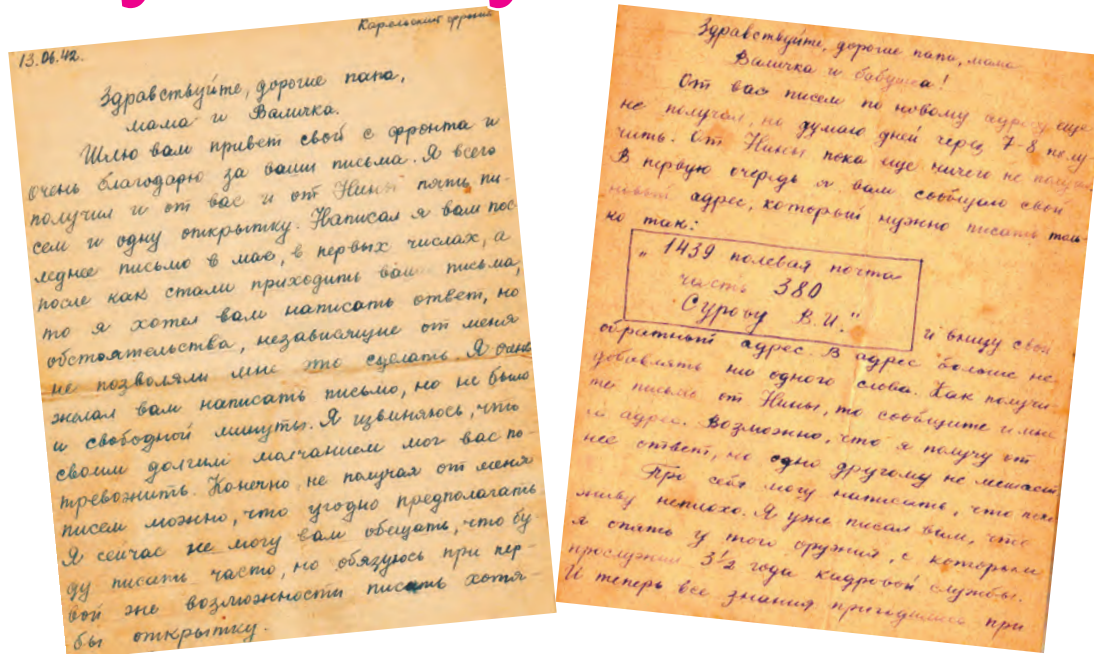 13.06.42.
Карельский фронт
Здравствуйте, дорогие папа,
мама и Валичка.
Шлю вам привет свой с фронта и
очень благодарю за ваши письма. Я всего
получил и от вас и от Нины пять пи-
сем и одну открытку. Написал я вам пос
леднее письмо в мае, в первых числах, а
после как стали приходить ваши письма,
то я хотел вам написать ответ, но
обстоятельства, независящие от меня
не позволяли мне это сделать. Я очень
желал вам написать письмо, но не было
и свободной минуты. Я извиняюсь, что
своим долгим малчанием мог вас по-
тревожить. Конечно, не получая от меня
писем можно, что угодно предполагать
Я сейчас не могу вам обещать, что бу-
ду писать часто, но обязуюсь при пер-
вой же возможности писать хотя-
бы открытку.
Здравствуйте, дорогие папа, мама
Валичка и бабушка!
От вас писем по новому адресу еще
не получал, но думаю дней через 7-8 полу-
чить. От Нины пока еще ничего не получил
В первую очередь я вам сообщаю свой
новый адрес, который нужно писать толь
ко так:
"1439 полевая почта
часть 380
Сурову В.И."
и внизу свой
обратный адрес. В адрес больше не
добавлять ни одного слова. Как получи
те письмо от Нины, то сообщите и мне
её адрес. Возможно, что я получу от
нее ответ, но одно другому не мешает
Про себя могу написать, что пока
живу неплохо. Я уже писал вам, что
я опять у того оружия, с которым
прослужил 3½ года кадровой службы.
И теперь все знания пригодились при